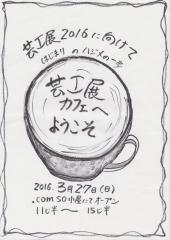 芸工展2016に向けて
はじまりのハジメの一歩
芸工展
カフェへ
ようこそ
2016. 3月27日(日)
.com SO小屋にてオープン
11じ半〜15じ半